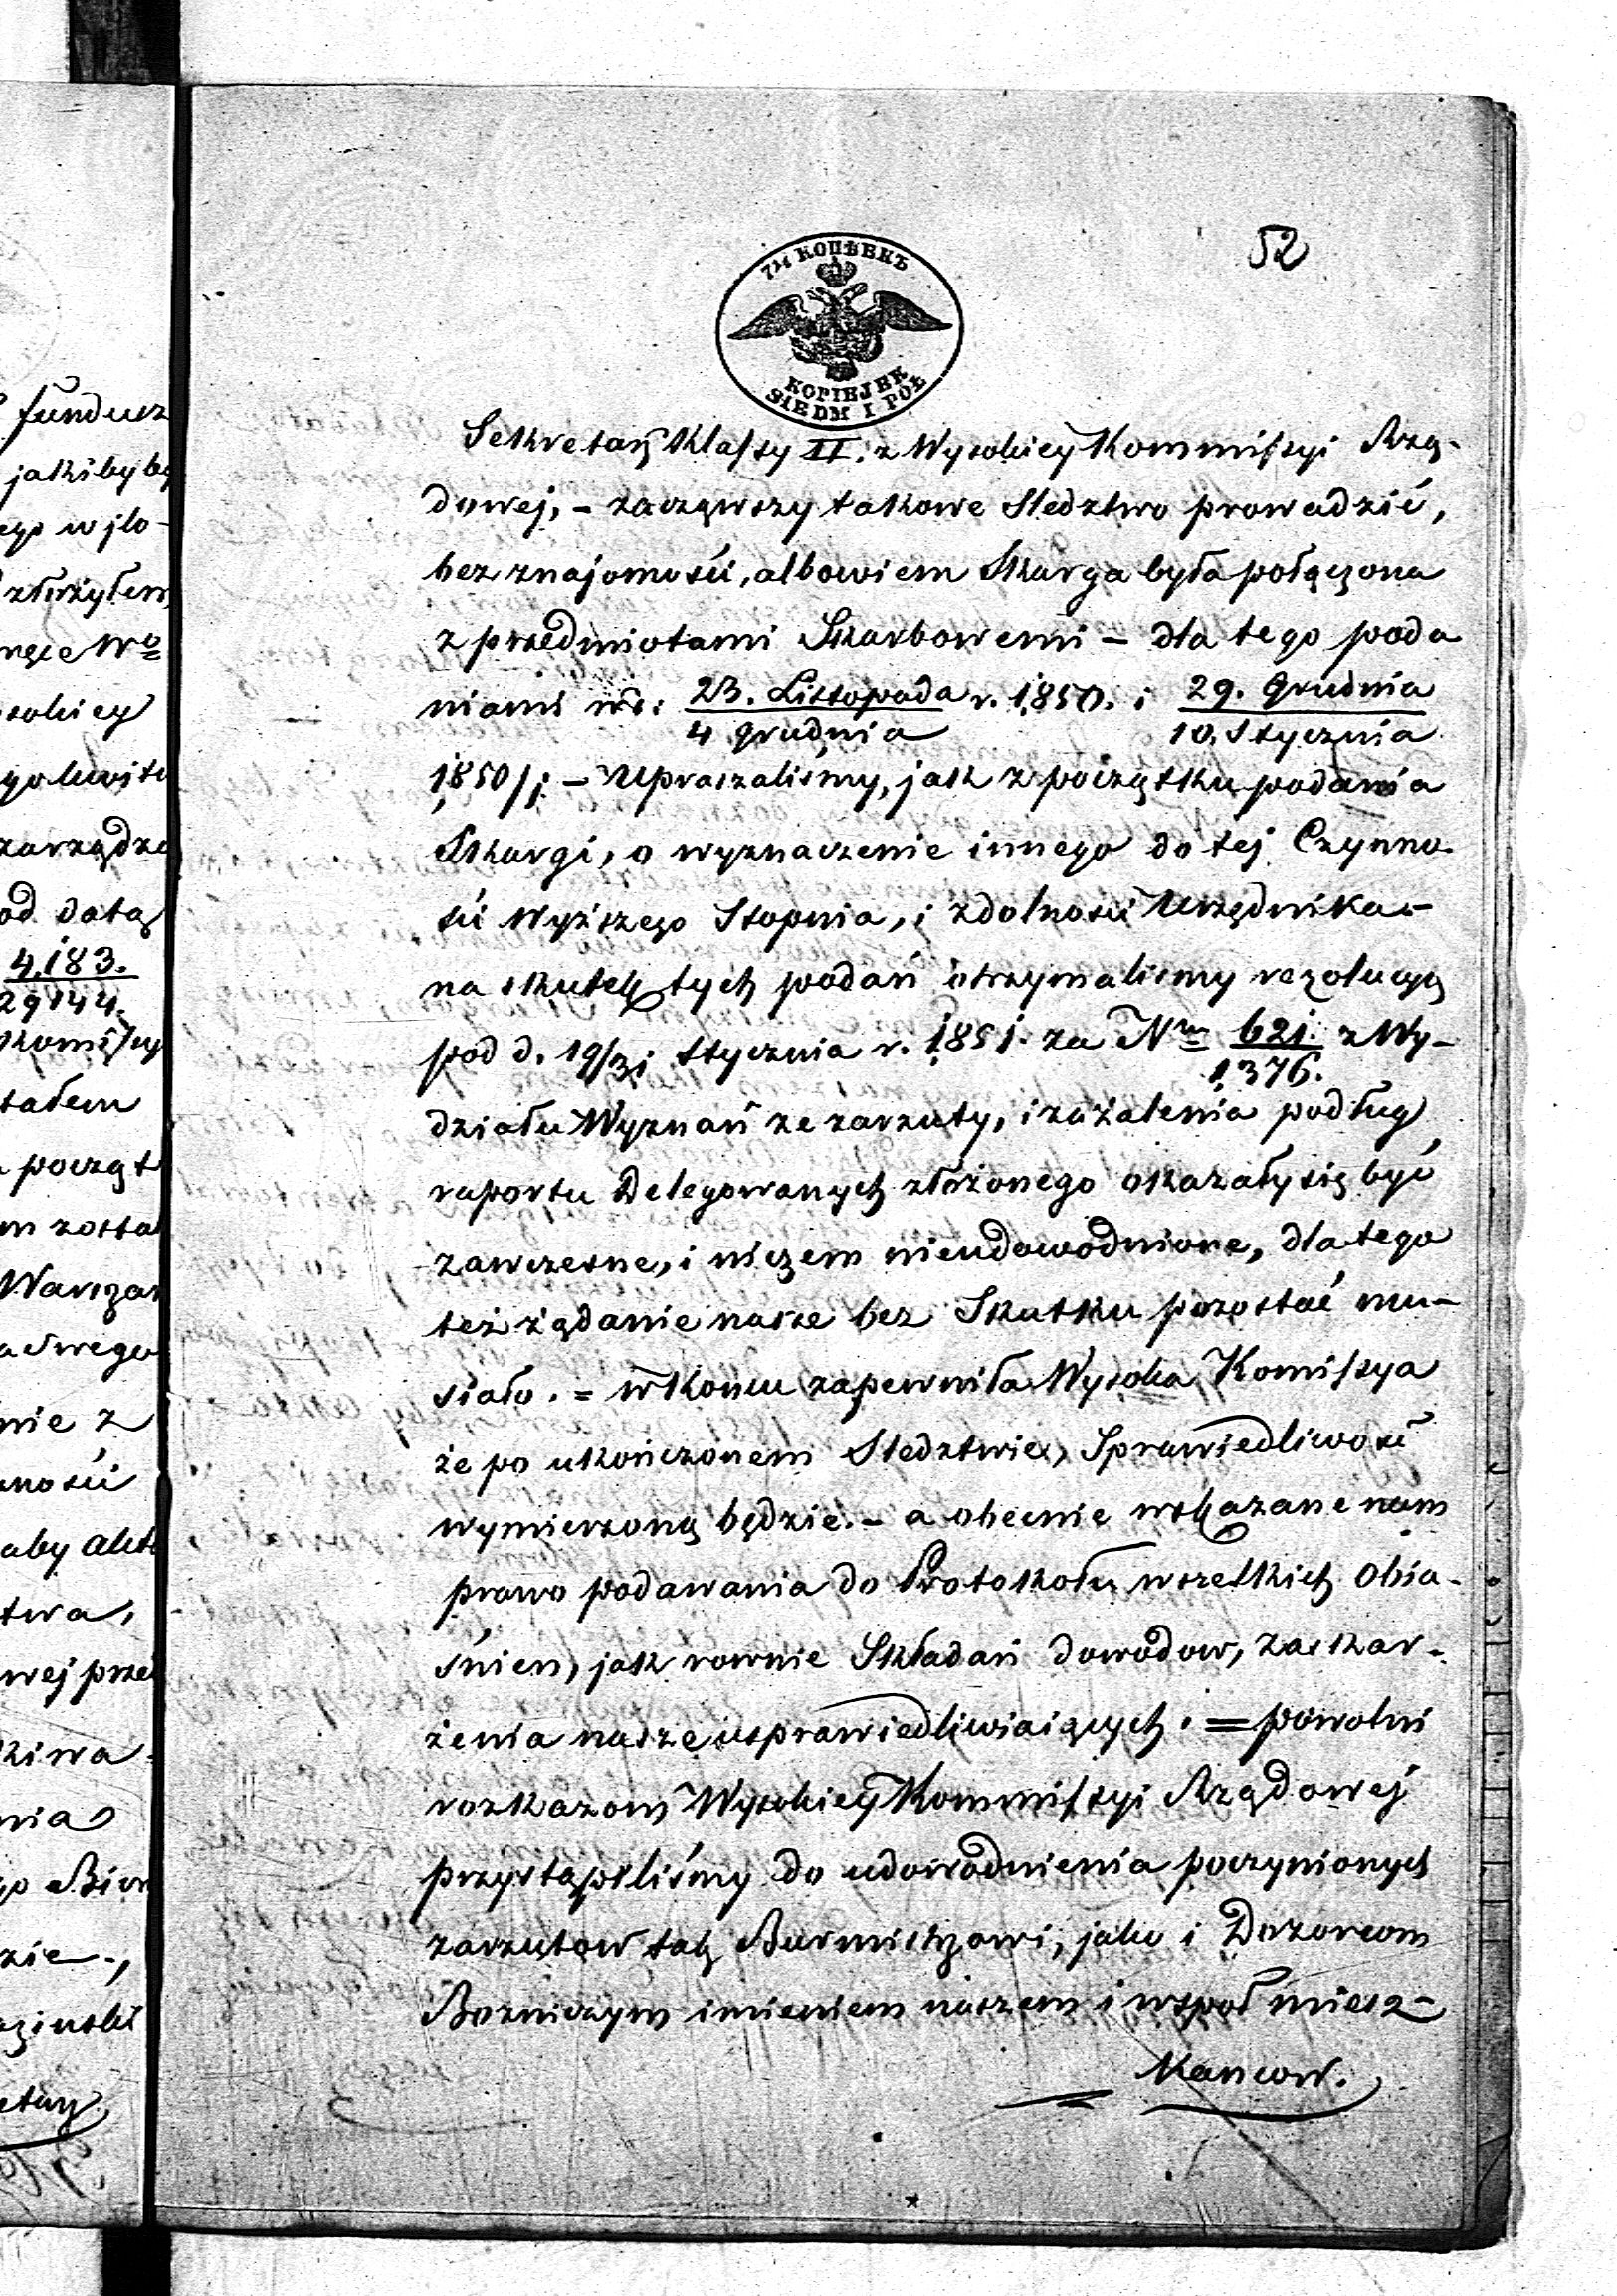 52
7½ КОПѢЕКЪ
KOPIEJEK
SIEDM I PÓŁ
Sekretarz Klassy II. z Wysokiey Kommissyi Rzą-
dowej, - zacząwszy takowe Sledztwo prowadzić,
bez znajomości, albowiem Skarga była połączona
z przedmiotami Skarbowemi - dla tego poda
niami 23. Listopada r. 1850. i 29. Grudnia
4 grudnia 10. Stycznia
1850/1 - Upraszaliśmy, jak z początku podania
Skargi, o wyznaczenie innego do tej Czynno-
ści Wyższego Stopnia, i zdolności Urzędnika -
na skutek tych podań otrzymalismy rezolucyą
pod d. 19/31 Stycznia r. 1851. za Nr 621. z Wy-
1,376.
działu Wyznań ze zarzuty, i zażalenia podług
raportu Delegowanych złożonego okazały się być
zawczesne, i niczem nieudowodnione, dla tego
też żądanie nasze bez Skutku pozostać mu-
siało. = w końcu zapewniła Wysoka Komissya
że po ukończonem Sledztwie, Sprawiedliwość
wymierzoną będzie. - a obecnie wskazane nam
prawo podawania do Protokołu wszelkich obia-
śnien, jak rownie Składań dowodow, zaskar-
żenia nasze usprawiedliwiaiących. = powolni
rozkazom Wysokiey Kommissyi Rządowej
przystąpiliśmy do udowodnienia poczynionych
zarzutow tak Burmistrzowi, jako i Dozorcom
Bozniczym imieniem naszem i wspoł miesz-
kancow.
fundusz
jakiby by
ego w jlo-
złożyłem
sokiey
zarządza
od datą
4,183.
29144.
Komissy
stałem
począt
m zosta
Warszaw
a swego
nie z
ności
aby akt
twa,
wej prze
kiwa-
nia
zie.,
etarz